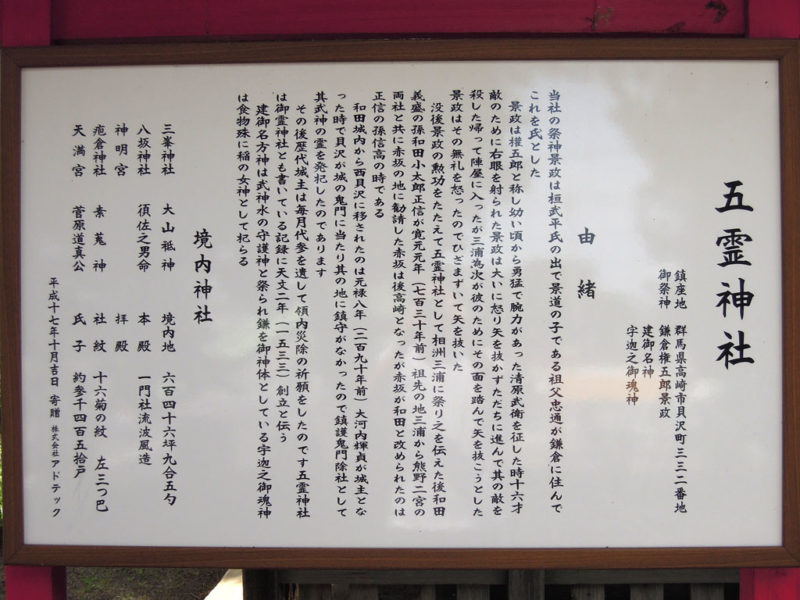 五霊神社
鎮座地 群馬県高崎市貝沢町三三二番地
御祭神 鎌倉権五郎景政
建御名神
宇迦之御魂神
由緒
当社の祭神景政は桓武平氏の出で景道の子である祖父忠通が鎌倉に住んで
これを氏とした
景政は権五郎と称し幼い頃から勇猛で腕力があった清原武衛を征した時十六才
敵のために右眼を射られた景政は大いに怒り矢を抜かずただちに進んで其の敵を
殺した帰って陣屋に入ったが三浦為次が彼のためにその面を踏んで矢を抜こうとした
景政はその無礼を怒ったのでひざまずいて矢を抜いた
没後景政の勲功をたたえて五霊神社として相州三浦に祭り之を伝えた後和田
義盛の孫和田小太郎正信が寛元元年(七百三十年前)祖先の地三浦から熊野二宮の
両社と共に赤坂の地に勧請した赤坂は後高崎となったが赤坂が和田と改められたのは
正信の孫信高の時である
和田城内から西貝沢に移されたのは元禄八年(二百九十年前)大河内輝貞が城主とな
った時で貝沢が城の鬼門に当たり其の地に鎮守がなかったので鎮護鬼門除社として
其武神の霊を発祀したのであります
その後歴代城主は毎月代参を遣して領内災除の祈願をしたのです五霊神社
は御霊神社とも書いている記録に天文二年(一五三三)創立と伝う
建御名方神は武神水の守護神と祭られ鎌を御神体としている宇迦之御魂神
は食物殊に稲の女神として祀らる
境内神社
三峯神社 大山祇神 境内地 六百四十六坪九合五勺
八坂神社 須佐之男命 本殿 一門社流波風造
神明宮 拝殿
疱倉神社 素菟神 社紋 十六菊の紋 左三つ巴
天満宮 菅原道真公 氏子 約参千四百五拾戸
平成十七年十月吉日 寄贈 株式会社アドテック